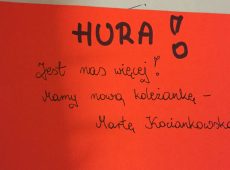 HURA!
Jest nas więcej!
Mamy nową koleżankę –
Martę Kociankowską